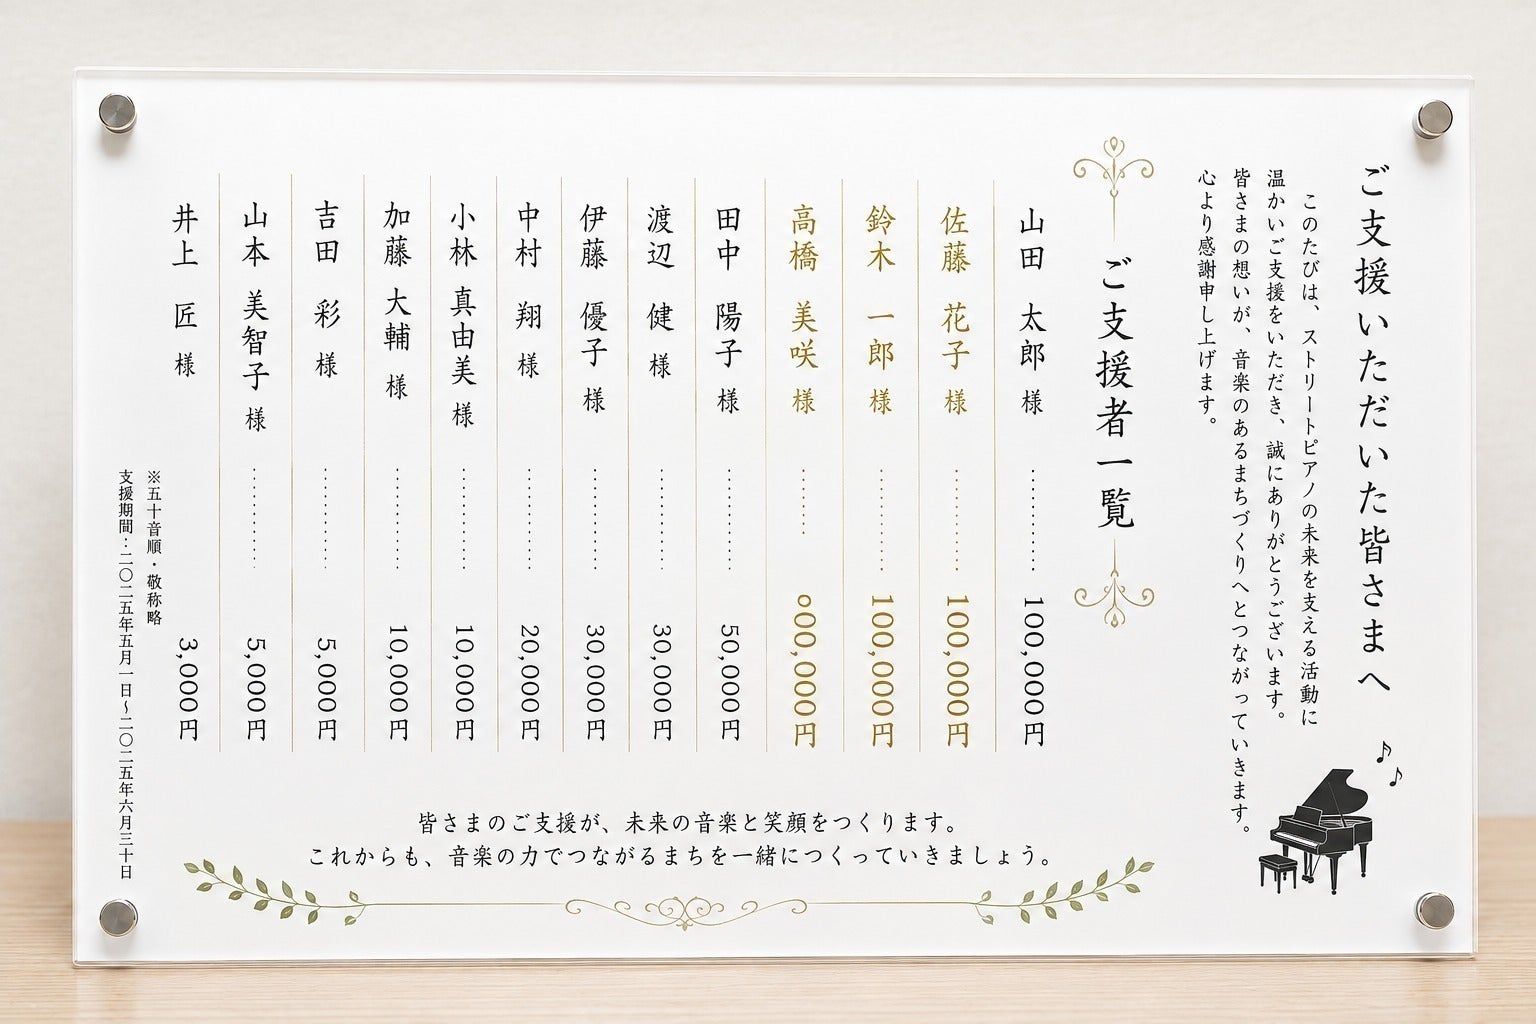 ご支援いただいた皆さまへ
このたびは、ストリートピアノの未来を支える活動に
温かいご支援をいただき、誠にありがとうございます。
皆さまの想いが、音楽のあるまちづくりへとつながっていきます。
心より感謝申し上げます。
ご支援者一覧
山田 太郎 様 ………… 100,000円
佐藤 花子 様 ………… 100,000円
鈴木 一郎 様 ………… 100,000円
高橋 美咲 様 ……… o00,000円
田中 陽子 様 ………… 50,000円
渡辺 健 様 ………… 30,000円
伊藤 優子 様 ………… 30,000円
中村 翔 様 ………… 20,000円
小林 真由美 様 ………… 10,000円
加藤 大輔 様 ………… 10,000円
吉田 彩 様 ………… 5,000円
山本 美智子 様 ………… 5,000円
井上 匠 様 3,000円
※五十音順・敬称略
支援期間：二〇二五年五月一日〜二〇二五年六月三十日
皆さまのご支援が、未来の音楽と笑顔をつくります。
これからも、音楽の力でつながるまちを一緒につくっていきましょう。